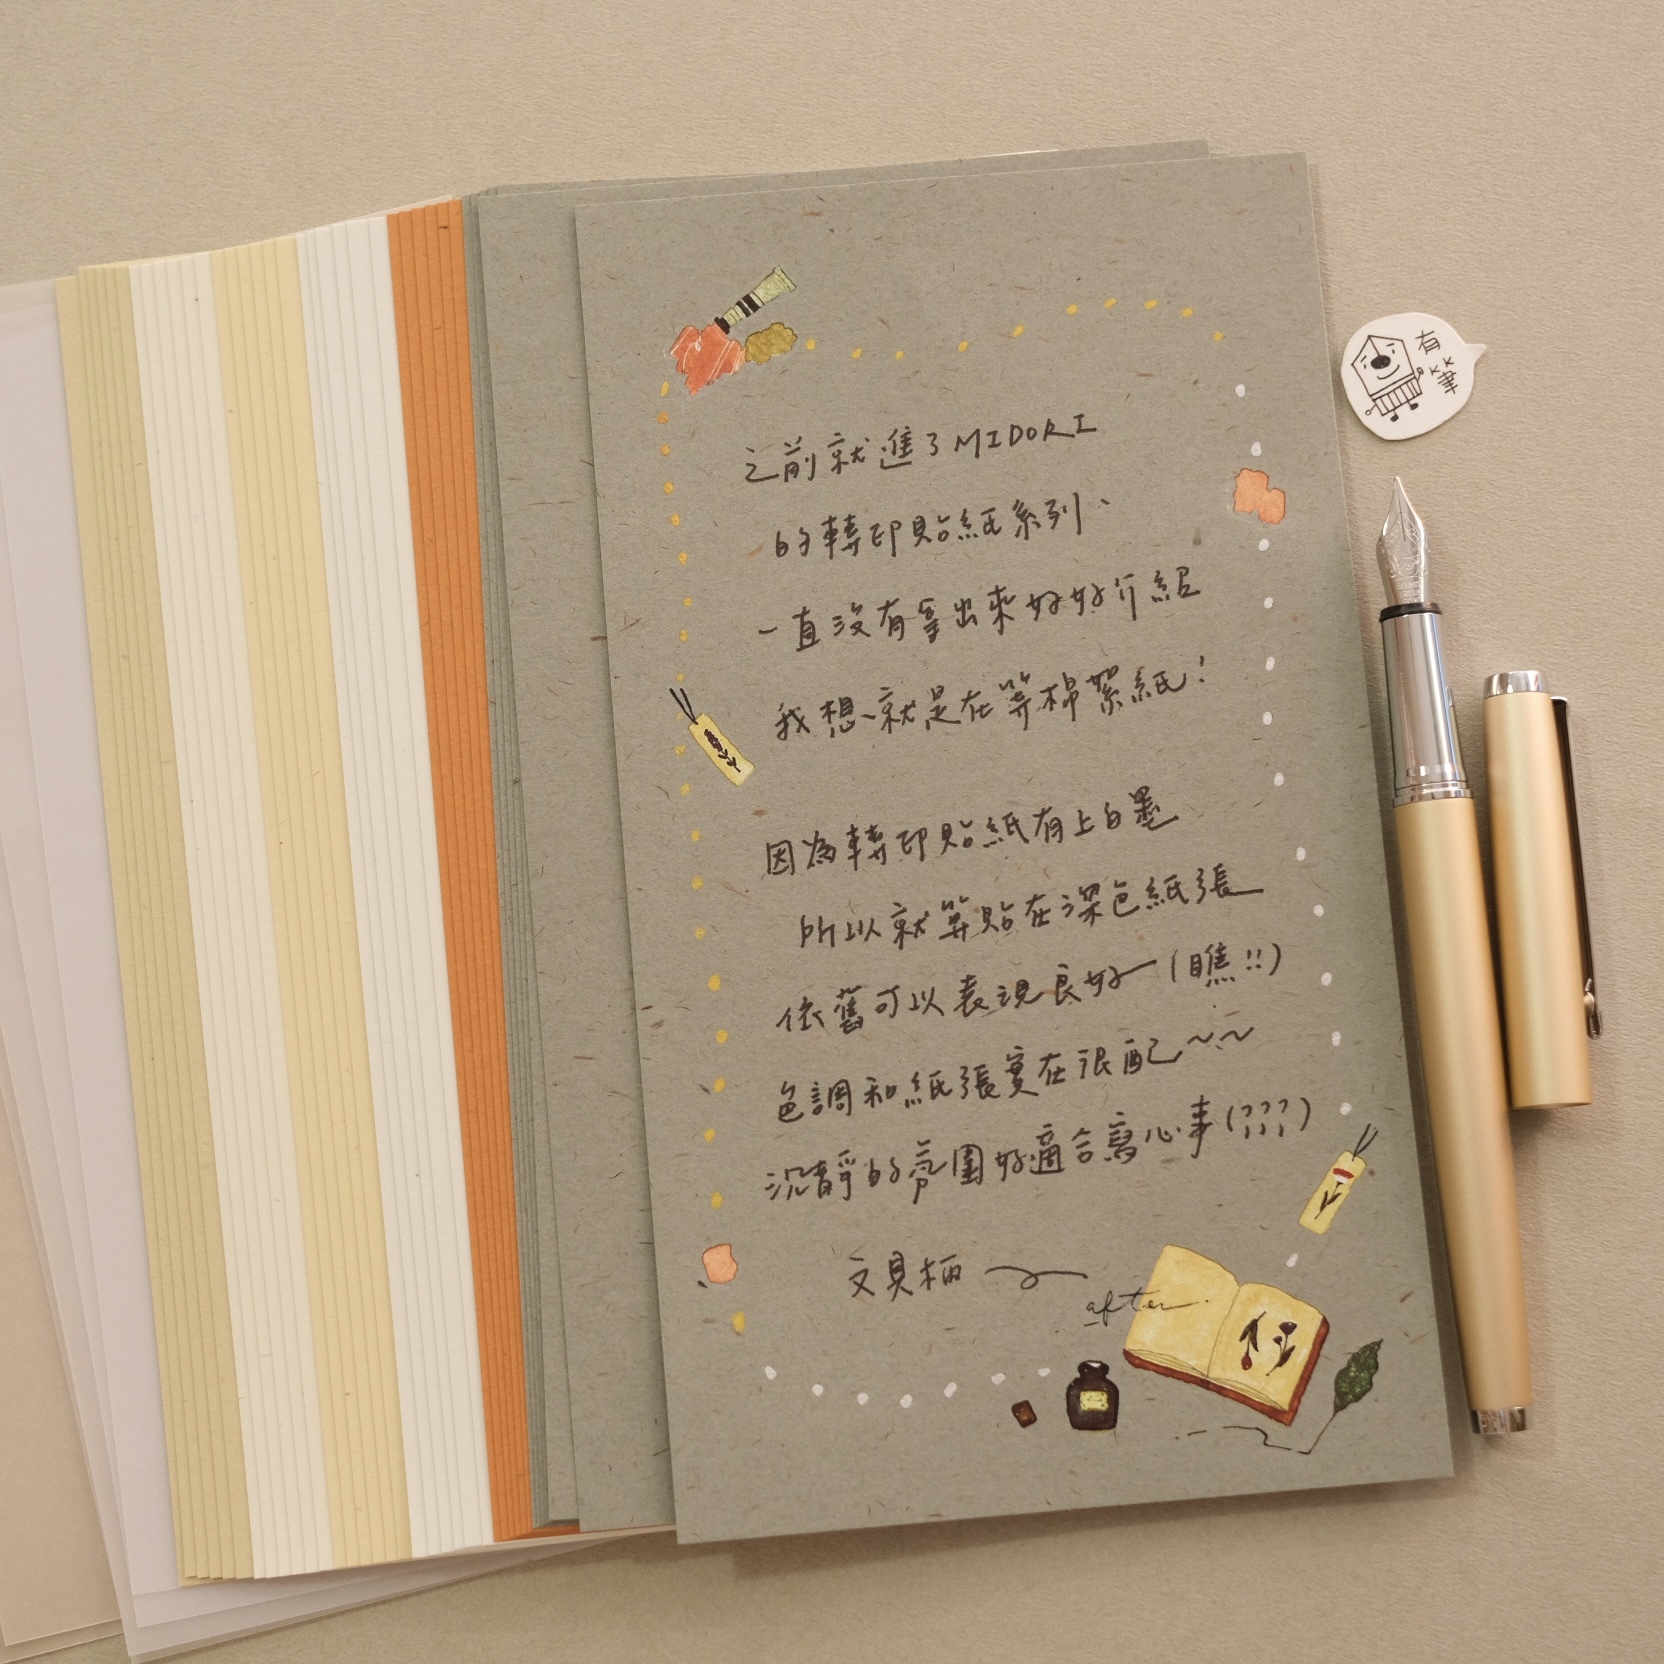 之前就進了MIDORI
的轉印貼紙系列、
一直沒有拿出來好好介紹
我想、就是在等棉絮紙！
因為轉印貼紙有上白墨
所以就算貼在深色紙張
依舊可以表現良好(瞧!!)
色調和紙張實在很配～～
沉靜的氛圍好適合寫心事(???)
文具柄
after.
有
KK
筆